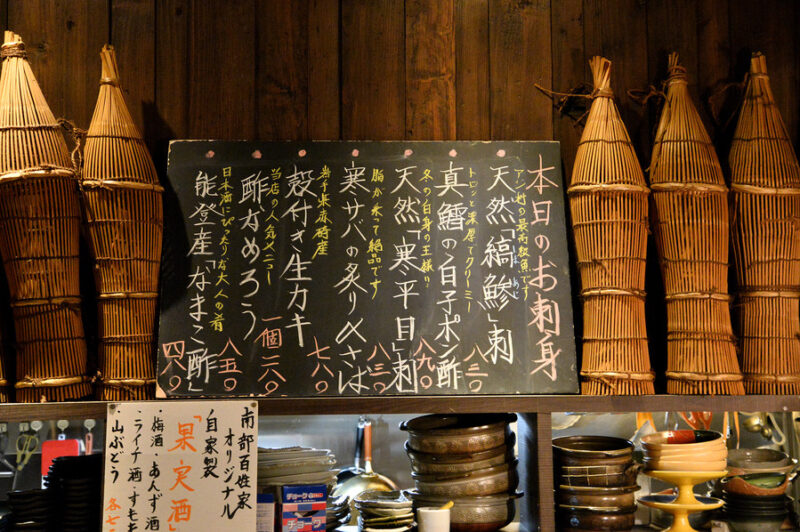 本日のお刺身
アジ科の最高級魚です
天然「縞鯵」刺 八三〇
しまあじ
トロッと濃厚でクリーミー
真鱈の白子ポン酢 八九〇
冬の白身の王様!!
天然「寒平目」刺 八三〇
脂が乗って絶品です
寒サバの炙り〆さば 七八〇
岩手県赤崎産
殻付き生カキ 一個
当店の人気メニュー
酢なめろう 八五〇
日本酒にぴったりな大人の肴
能登産「なまこ酢」
南部百姓家
オリジナル
自家製
「果実酒」
・梅酒・あんず酒
・ライチ酒・すもも
・山ぶどう 各七
チョーク
チョーク